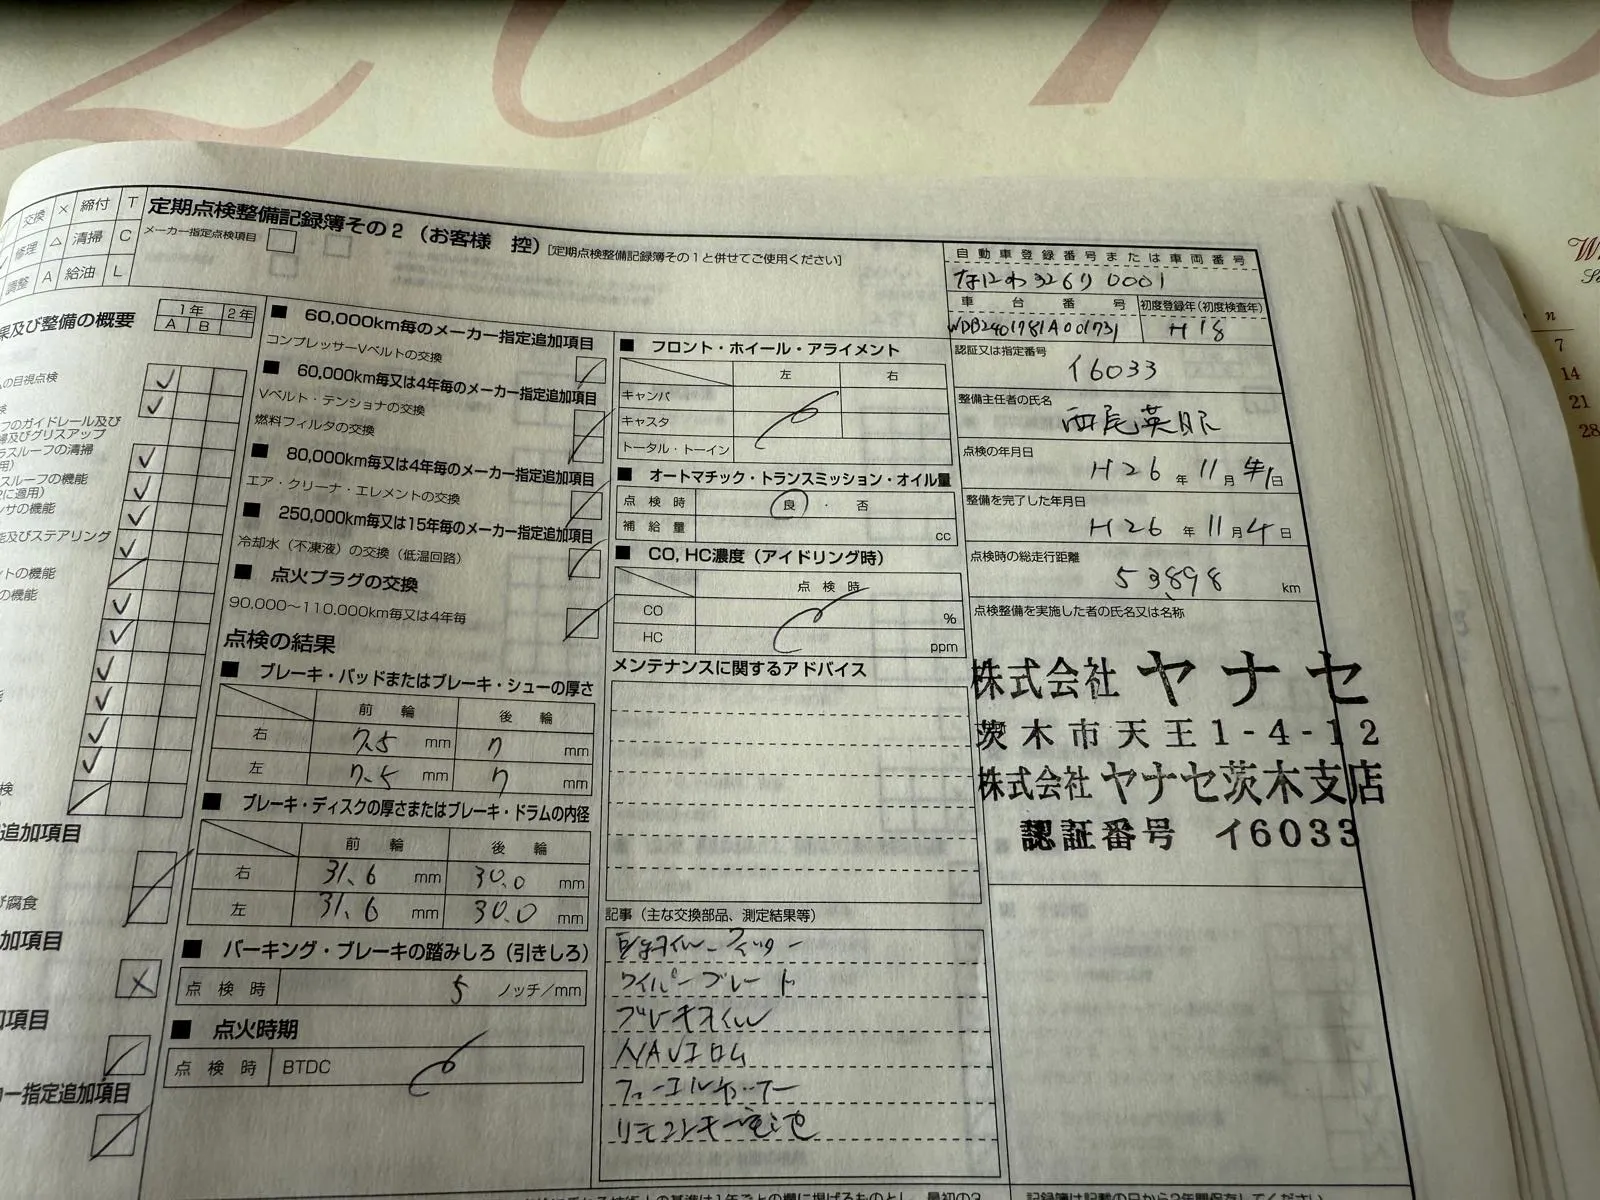 交換 × 締付 T
修理 △ 清掃 C
調整 A 給油 L
定期点検整備記録簿その2（お客様 控）[定期点検整備記録簿その1と併せてご使用ください]
メーカー指定点検項目
果及び整備の概要
1年 2年
A B
の目視点検
検
フのガイドレール及び
掃及びグリスアップ
ラスルーフの清掃
用)
スルーフの機能
に適用)
ンサの機能
能及びステアリング
ントの機能
の機能
能
検
追加項目
び腐食
加項目
口項目
カー指定追加項目
■ 60,000km毎のメーカー指定追加項目
コンプレッサーVベルトの交換
■ 60,000km毎又は4年毎のメーカー指定追加項目
Vベルト・テンショナの交換
燃料フィルタの交換
■ 80,000km毎又は4年毎のメーカー指定追加項目
エア・クリーナ・エレメントの交換
■ 250,000km毎又は15年毎のメーカー指定追加項目
冷却水（不凍液）の交換（低温回路）
■ 点火プラグの交換
90,000〜110,000km毎又は4年毎
点検の結果
■ ブレーキ・パッドまたはブレーキ・シューの厚さ
前輪 後輪
右 7.5 mm 7 mm
左 7.5 mm 7 mm
■ ブレーキ・ディスクの厚さまたはブレーキ・ドラムの内径
前輪 後輪
右 31.6 mm 30.0 mm
左 31.6 mm 30.0 mm
■ パーキング・ブレーキの踏みしろ（引きしろ）
点検時 5 ノッチ/mm
■ 点火時期
点検時 BTDC
■ フロント・ホイール・アライメント
左 右
キャンバ
キャスタ
トータル・トーイン
■ オートマチック・トランスミッション・オイル量
点検時 良・否
補給量 cc
■ CO, HC濃度（アイドリング時）
点検時
CO %
HC ppm
メンテナンスに関するアドバイス
記事（主な交換部品、測定結果等）
オイル-フィルター
ワイパーブレード
ブレーキオイル
NAVIロム
リモコンキー電池
自動車登録番号または車両番号
0001
車台番号 初度登録年(初度検査年)
WDB2401781A001731 H18
認証又は指定番号
イ6033
整備主任者の氏名
西尾英
点検の年月日
H26年11月 日
整備を完了した年月日
H26年11月4日
点検時の総走行距離
53898 km
点検整備を実施した者の氏名又は名称
株式会社 ヤナセ
茨木市天王1-4-12
株式会社 ヤナセ茨木支店
認証番号 イ6033
記録簿は記載の日から2年間保存してください
n
7
14
21
28